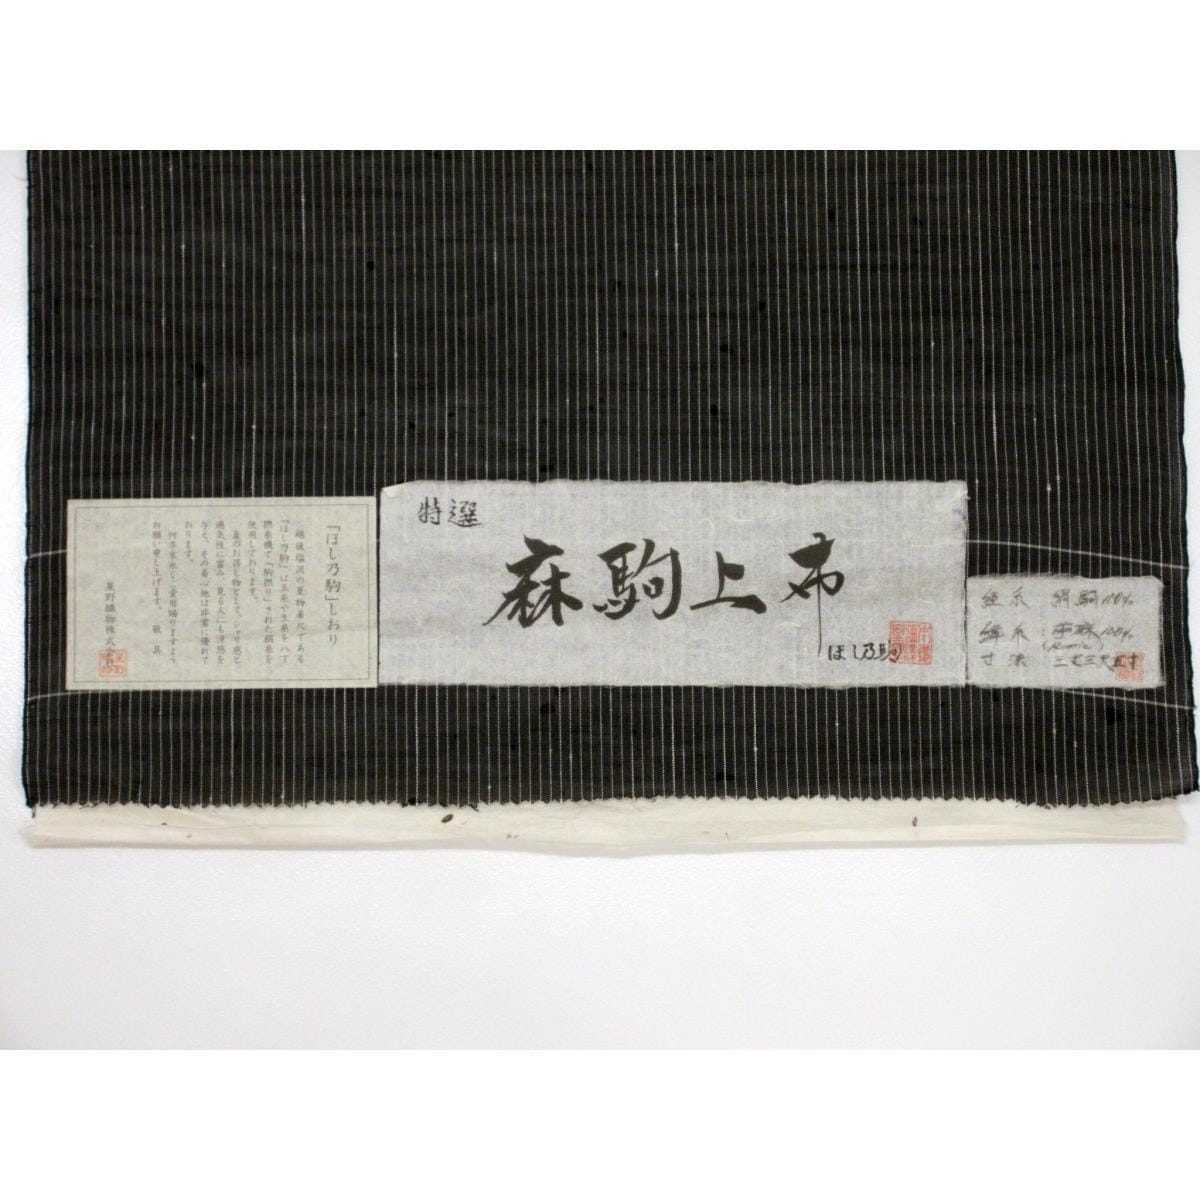 「ほし乃駒」しおり
越後塩沢の夏物着尺である
『ほし乃駒』は玉糸や生糸を八丁
撚糸機で『駒撚り』された絹糸を
使用しております。
夏のお洋し物として、シャリ感と
通気性に富み、見る人にも涼感を
与え、その着心地は非常に優れて
おります。
何卒末永くご愛用賜りますよう
お願い申し上げます。 敬具
星野織物株式会社
特選
麻駒上布
ほし乃駒
経糸 絹駒100%
緯糸 苧麻100%
(Ramie)
寸法 三丈三尺五寸